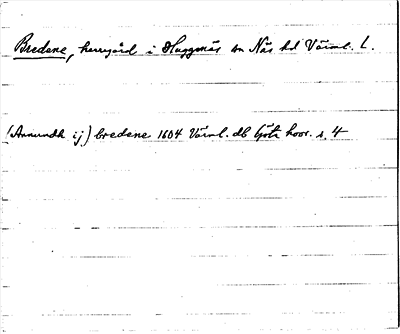 Bredene, herrgård i Huggenäs sn Näs hd Värml. L.
(Amundh ij) bredene 1604 Värml. db Göta hovr. s. 4